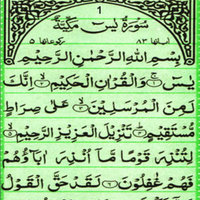 1
سُوْرَةُ يٰسٓ مَكِّيَّةٌ
اٰیاتها ٨٣
رکوعاتها ٥
بِسْمِ اللّٰهِ الرَّحْمٰنِ الرَّحِيْمِ
يٰسٓ ۚ وَالْقُرْاٰنِ الْحَكِيْمِ ۙ اِنَّكَ
لَمِنَ الْمُرْسَلِيْنَ ۙ عَلٰى صِرَاطٍ
مُّسْتَقِيْمٍ ؕ تَنْزِيْلَ الْعَزِيْزِ الرَّحِيْمِ ۙ
لِتُنْذِرَ قَوْمًا مَّاۤ اُنْذِرَ اٰبَآؤُهُمْ
فَهُمْ غٰفِلُوْنَ لَقَدْ حَقَّ الْقَوْلُ